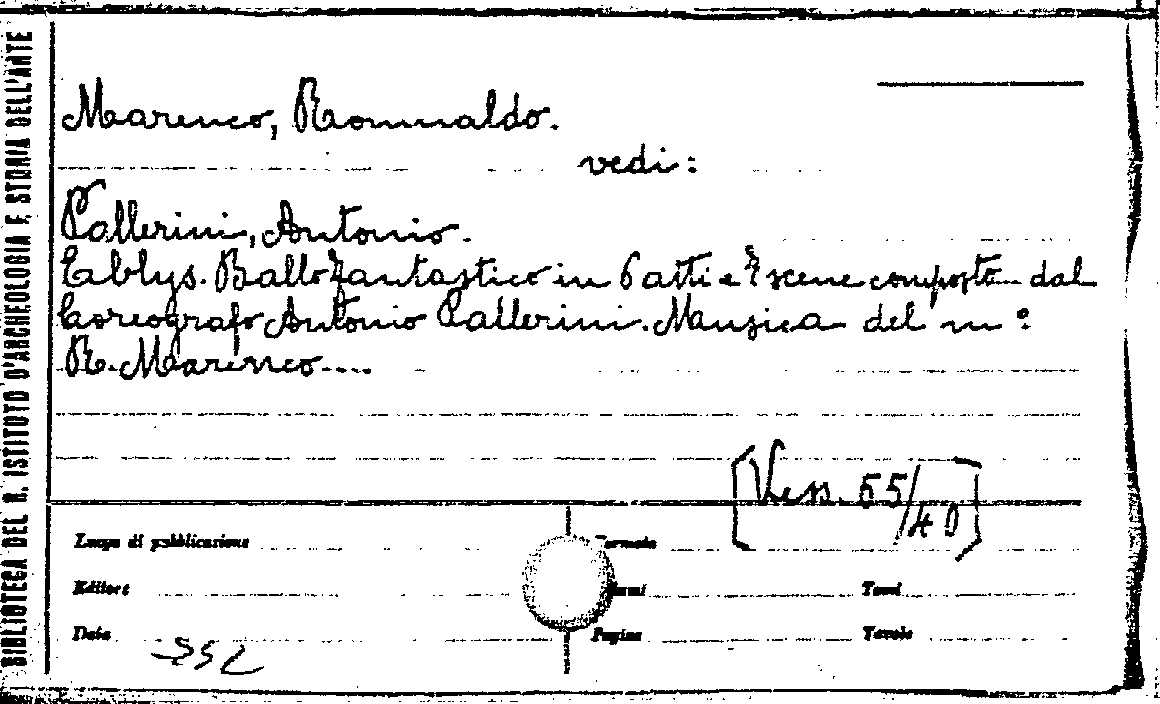 BIBLIOTECA DEL R. ISTITUTO D'ARCHEOLOGIA E STORIA DELL'ARTE
Marenco, Romualdo.
vedi:
Pallerini, Antonio.
Ballo fantastico in 6 atti e 7 scene composto dal
Coreografo Antonio Pallerini. Musica del m°
R. Marenco....
55/40
Luogo di pubblicazione
Formato
Editore
Tomi
Data
Pagine
Tavole